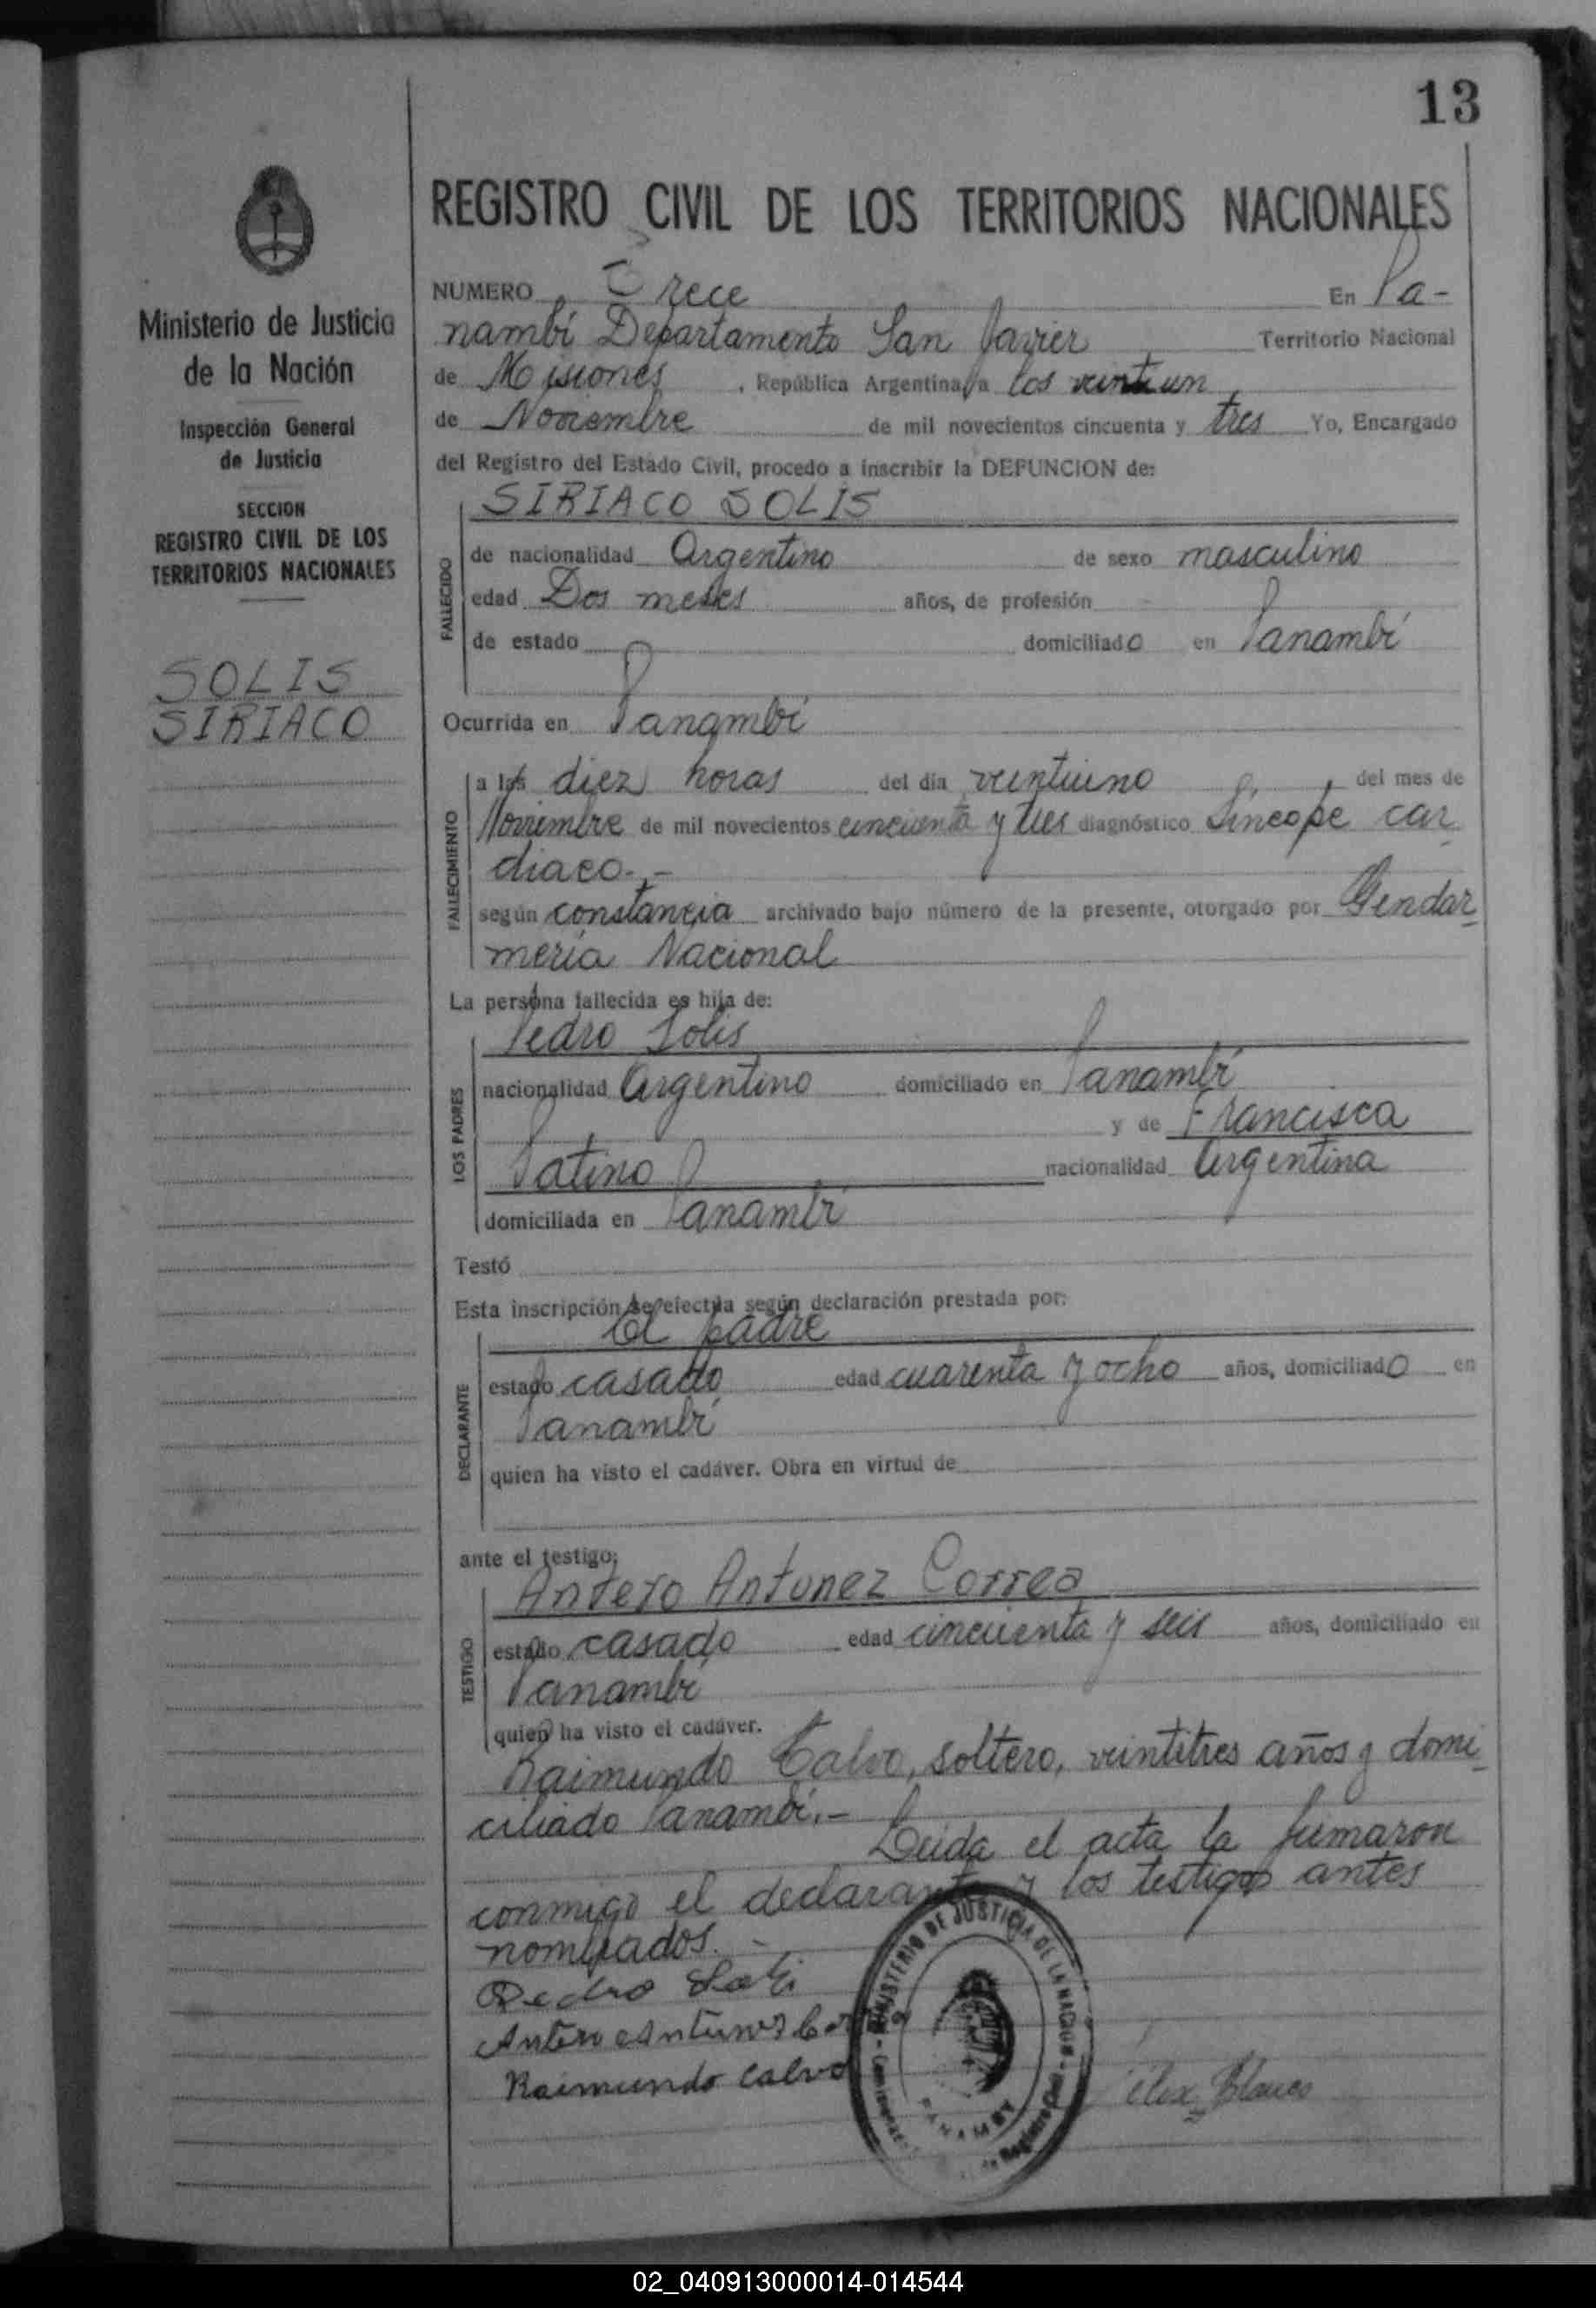 13
REGISTRO CIVIL DE LOS TERRITORIOS NACIONALES
Ministerio de Justicia
de la Nación
Inspección General
de Justicia
SECCION
REGISTRO CIVIL DE LOS
TERRITORIOS NACIONALES
SOLIS
SIRIACO
NUMERO Trece En Pa-
nambí Departamento San Javier Territorio Nacional
de Misiones, República Argentina, a los veintiun
de Noviembre de mil novecientos cincuenta y tres Yo, Encargado
del Registro del Estado Civil, procedo a inscribir la DEFUNCION de:
SIRIACO SOLIS
FALLECIDO
de nacionalidad Argentino de sexo masculino
edad Dos meses años, de profesión
de estado domiciliado en Panambí
Ocurrida en Panambí
FALLECIMIENTO
a las diez horas del día veintiuno del mes de
Noviembre de mil novecientos cincuenta y tres diagnóstico Síncope car
diaco.-
según constancia archivado bajo número de la presente, otorgado por Gendar
mería Nacional
La persona fallecida es hija de:
LOS PADRES
Pedro Solis
nacionalidad Argentino domiciliado en Panambí
y de Francisca
Patino nacionalidad Argentina
domiciliada en Panambí
Testó
Esta inscripción se efectúa según declaración prestada por:
DECLARANTE
El padre
estado casado edad cuarenta y ocho años, domiciliado en
Panambí
quien ha visto el cadáver. Obra en virtud de
ante el testigo:
TESTIGO
Antero Antunez Correa
estado casado edad cincuenta y seis años, domiciliado en
Panambí
quien ha visto el cadáver.
Raimundo Calvo, soltero, veintitres años y domi
ciliado Panambí.-
Leida el acta la firmaron
conmigo el declarante y los testigos antes
nombrados.-
Pedro Solis
Antero Antunez
Raimundo Calvo
MINISTERIO DE JUSTICIA DE LA NACION
Registro Civil
PANAMBI
Blanco
02_040913000014-014544